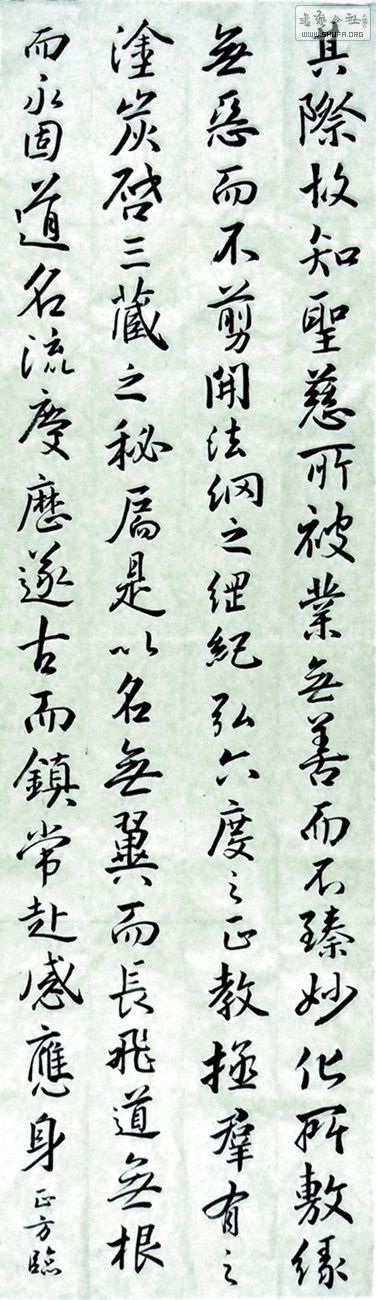 書藝公社
WWW.SHUFA.ORG
真際故知聖慈所被業無善而不臻妙化所敷緣
無惡而不剪開法網之綱紀弘六度之正教拯羣有之
塗炭啓三藏之秘扃是以名無翼而長飛道無根
而永固道名流慶歷遂古而鎮常赴感應身
正方臨